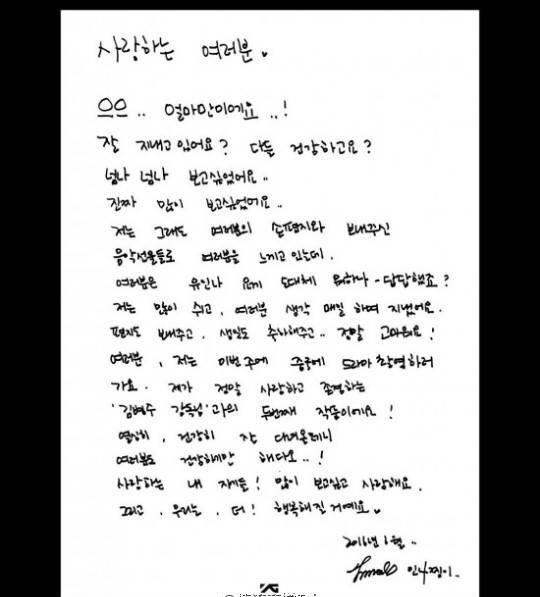 사랑하는 여러분.
으으.. 얼마만이에요..!
잘 지내고 있어요? 다들 건강하고요?
넘나 넘나 보고싶었어요..
진짜 많이 보고싶었어요..
저는 그래도 여러분의 손편지와 보내주신
음악선물들로 여러분을 느끼고 있는데.
여러분은 유인나 요게 도대체 뭐하나 - 답답했죠?
저는 많이 쉬고, 여러분 생각 매일 하며 지냈어요.
편지도 보내주고, 생일도 축하해주고.. 정말 고마워요!
여러분, 저는 이번주에 중국에 드라마 촬영하러
가요. 제가 정말 사랑하고 존경하는
'김병수 감독님'과의 두번째 작품이에요!
열심히, 건강히 잘 다녀올테니
여러분도 건강하게만 해다오..!
사랑하는 내 자기들! 많이 보고싶고 사랑해요.
그리고, 우리는, 더! 행복해질 거예요.
2016년 1월..
인나찡이.
YG